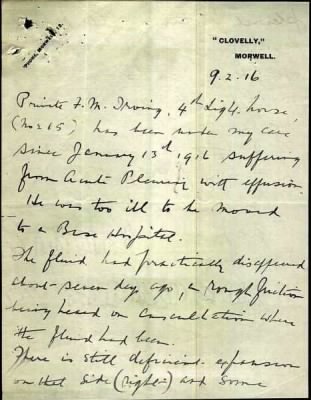 "CLOVELLY,"
MORWELL.
9.2.16
Private F. M. Irving, 4th Light Horse,
has been under my care
since January 13th 1916 suffering
from Acute Pleurisy with effusion
He was too ill to be moved
to a Base Hospital.
The fluid had practically disappeared
about seven days ago, a rough friction
being heard on Auscultation where
the fluid had been.
There is still deficient expansion
on that side (right) and some